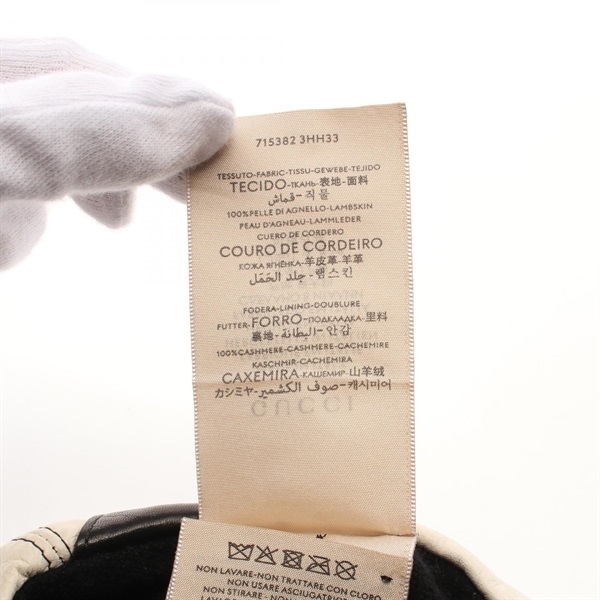 715382 3HH33
TESSUTO-FABRIC-TISSU-GEWEBE-TEJIDO
TECIDO-ТКАНЬ-表地-面料
قماش-직물
100%PELLE DI AGNELLO-LAMBSKIN
PEAU D'AGNEAU-LAMMLEDER
CUERO DE CORDERO
COURO DE CORDEIRO
КОЖА ЯГНЁНКА-羊皮革-羊革
جلد الحَمَل-램스킨
FODERA-LINING-DOUBLURE
FUTTER-FORRO-ПОДКЛАДКА-里料
裏地-البطانة-안감
100%CASHMERE-CASHMERE-CACHEMIRE
KASCHMIR-CACHEMIRA
CAXEMIRA-КАШЕМИР-山羊绒
カシミヤ-صوف الكشمير-캐시미어
GUCCI
NON LAVARE-NON TRATTARE CON CLORO
NON USARE ASCIUGATRICE